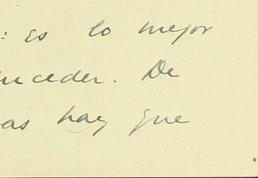 : es lo mejor
nceder. De
as hay que